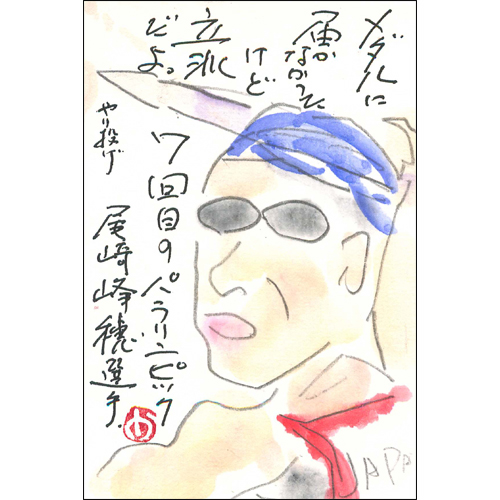 メダルに
届かなかった
けど
立派
だよ。
やり投げ
7回目のパラリンピック
尾崎峰穂選手.
JAPA